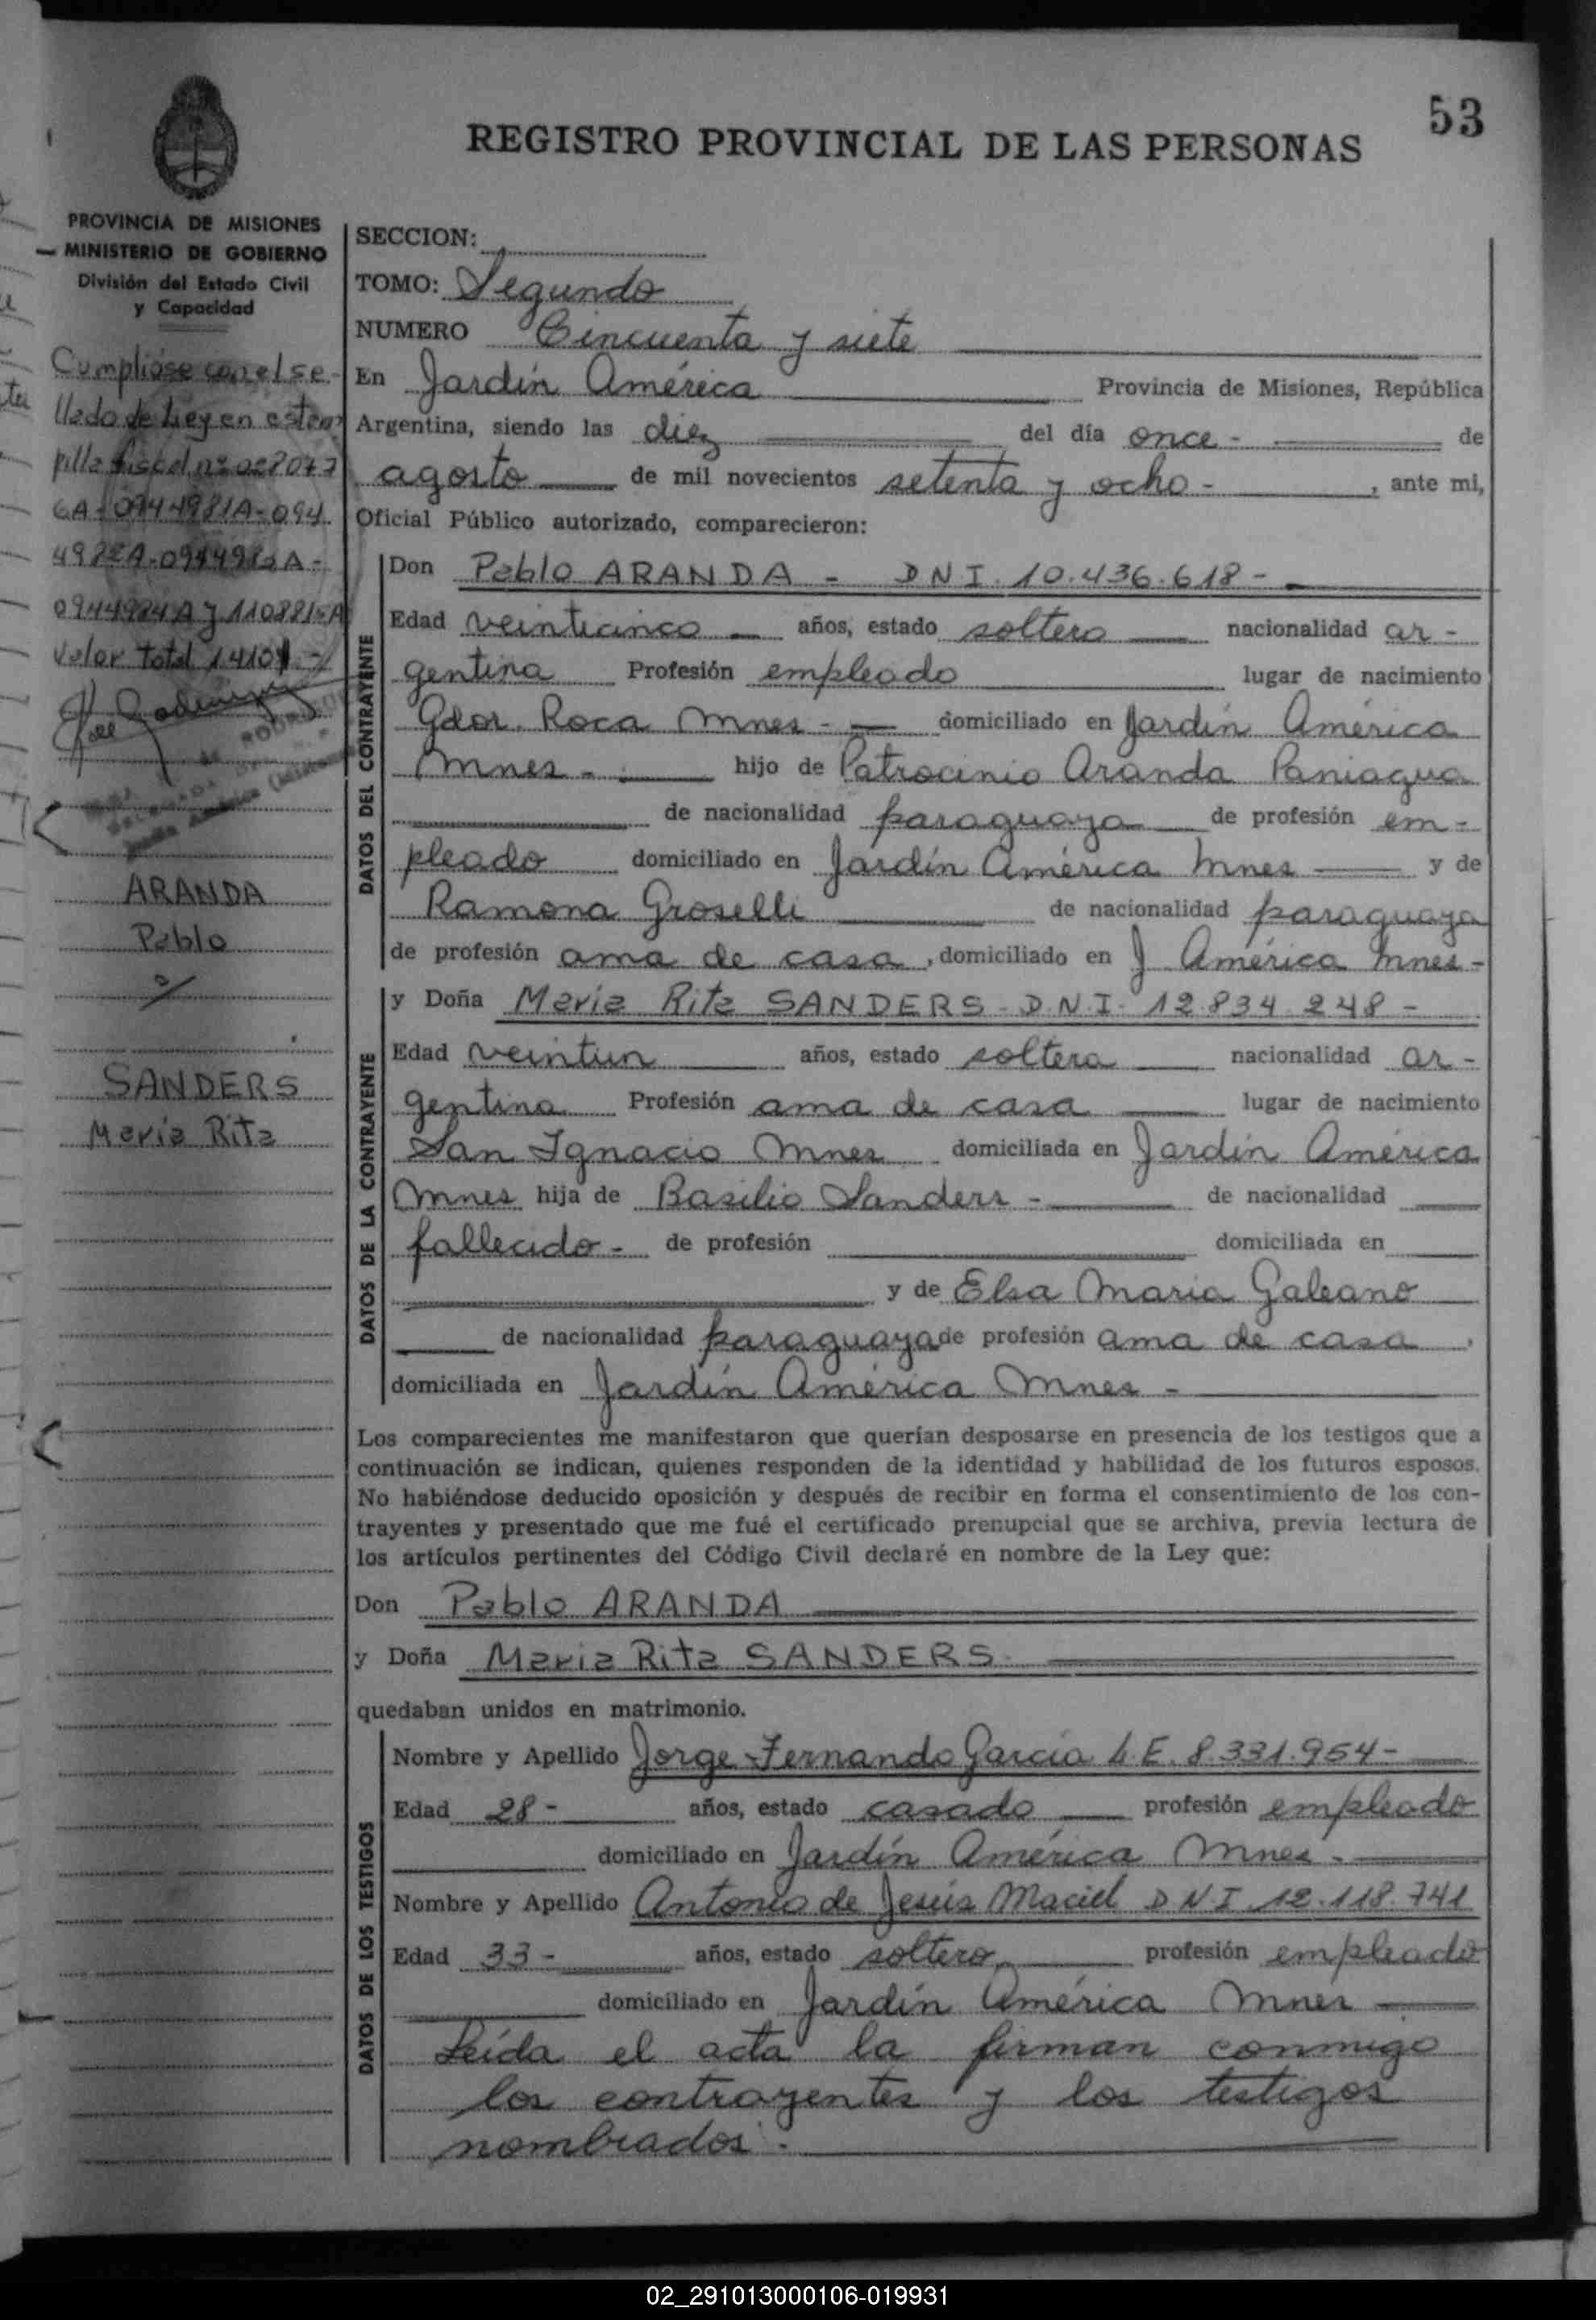 53
REGISTRO PROVINCIAL DE LAS PERSONAS
PROVINCIA DE MISIONES
MINISTERIO DE GOBIERNO
División del Estado Civil
y Capacidad
Cumplióse con el se-
llado de Ley en estam
pilla fiscal nº
valor total
ARANDA
Pablo
c/
SANDERS
María Rita
SECCION:
TOMO: Segundo
NUMERO Cincuenta y siete
En Jardín América Provincia de Misiones, República
Argentina, siendo las diez del día once - de
agosto de mil novecientos setenta y ocho - , ante mi,
Oficial Público autorizado, comparecieron:
DATOS DEL CONTRAYENTE
Don Pablo ARANDA - DNI. 10.436.618 -
Edad veinticinco años, estado soltero nacionalidad ar-
gentina Profesión empleado lugar de nacimiento
Gdor. Roca Mnes - domiciliado en Jardín América
Mnes - hijo de Patrocinio Aranda Paniagua
de nacionalidad paraguaya de profesión em-
pleado domiciliado en Jardín América Mnes y de
Ramona Groselli de nacionalidad paraguaya
de profesión ama de casa , domiciliado en J América Mnes -
DATOS DE LA CONTRAYENTE
y Doña María Rita SANDERS - D.N.I. 12.834.248 -
Edad veintiun años, estado soltera nacionalidad ar-
gentina Profesión ama de casa lugar de nacimiento
San Ignacio Mnes domiciliada en Jardín América
Mnes hija de Basilio Sanders - de nacionalidad
fallecido - de profesión domiciliada en
y de Elsa María Galeano
de nacionalidad paraguaya de profesión ama de casa ,
domiciliada en Jardín América Mnes -
Los comparecientes me manifestaron que querían desposarse en presencia de los testigos que a
continuación se indican, quienes responden de la identidad y habilidad de los futuros esposos.
No habiéndose deducido oposición y después de recibir en forma el consentimiento de los con-
trayentes y presentado que me fué el certificado prenupcial que se archiva, previa lectura de
los artículos pertinentes del Código Civil declaré en nombre de la Ley que:
Don Pablo ARANDA
y Doña María Rita SANDERS
quedaban unidos en matrimonio.
DATOS DE LOS TESTIGOS
Nombre y Apellido Jorge Fernando García L.E. 8.331.954 -
Edad 28 - años, estado casado profesión empleado
domiciliado en Jardín América Mnes -
Nombre y Apellido Antonio de Jesús Maciel D N I 12.118.741
Edad 33 - años, estado soltero profesión empleado
domiciliado en Jardín América Mnes
Leída el acta la firman conmigo
los contrayentes y los testigos
nombrados.-
02_291013000106-019931